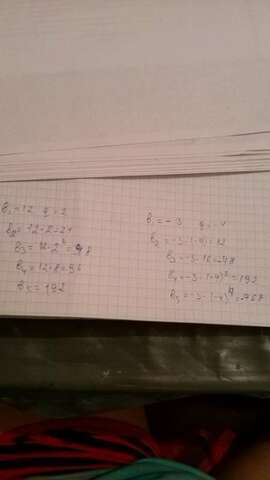 b₁ = 12 q = 2
b₂ = 12 · 2 = 24
b₃ = 12 · 2² = 48
b₄ = 12 · 8 = 96
b₅ = 192
b₁ = -3 q = -4
b₂ = -3 · (-4) = 12
b₃ = -3 · 16 = -48
b₄ = -3 · (-4)³ = 192
b₅ = -3 · (-4)⁴ = -768